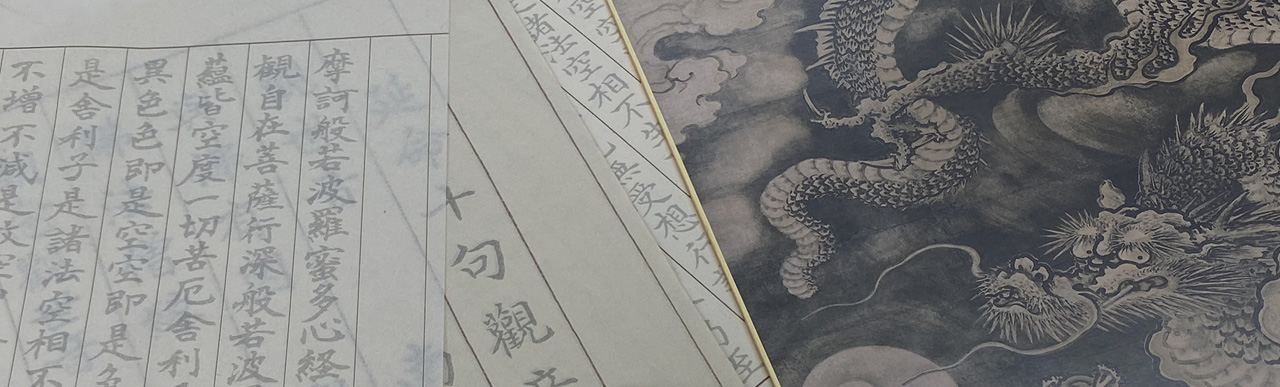 摩訶般若波羅蜜多心経
観自在菩薩行深般若波
蘊皆空度一切苦厄舎利
異色色即是空空即是色
是舎利子是諸法空相不
不増不減是故空
十句觀
諸法空相不生
無受想